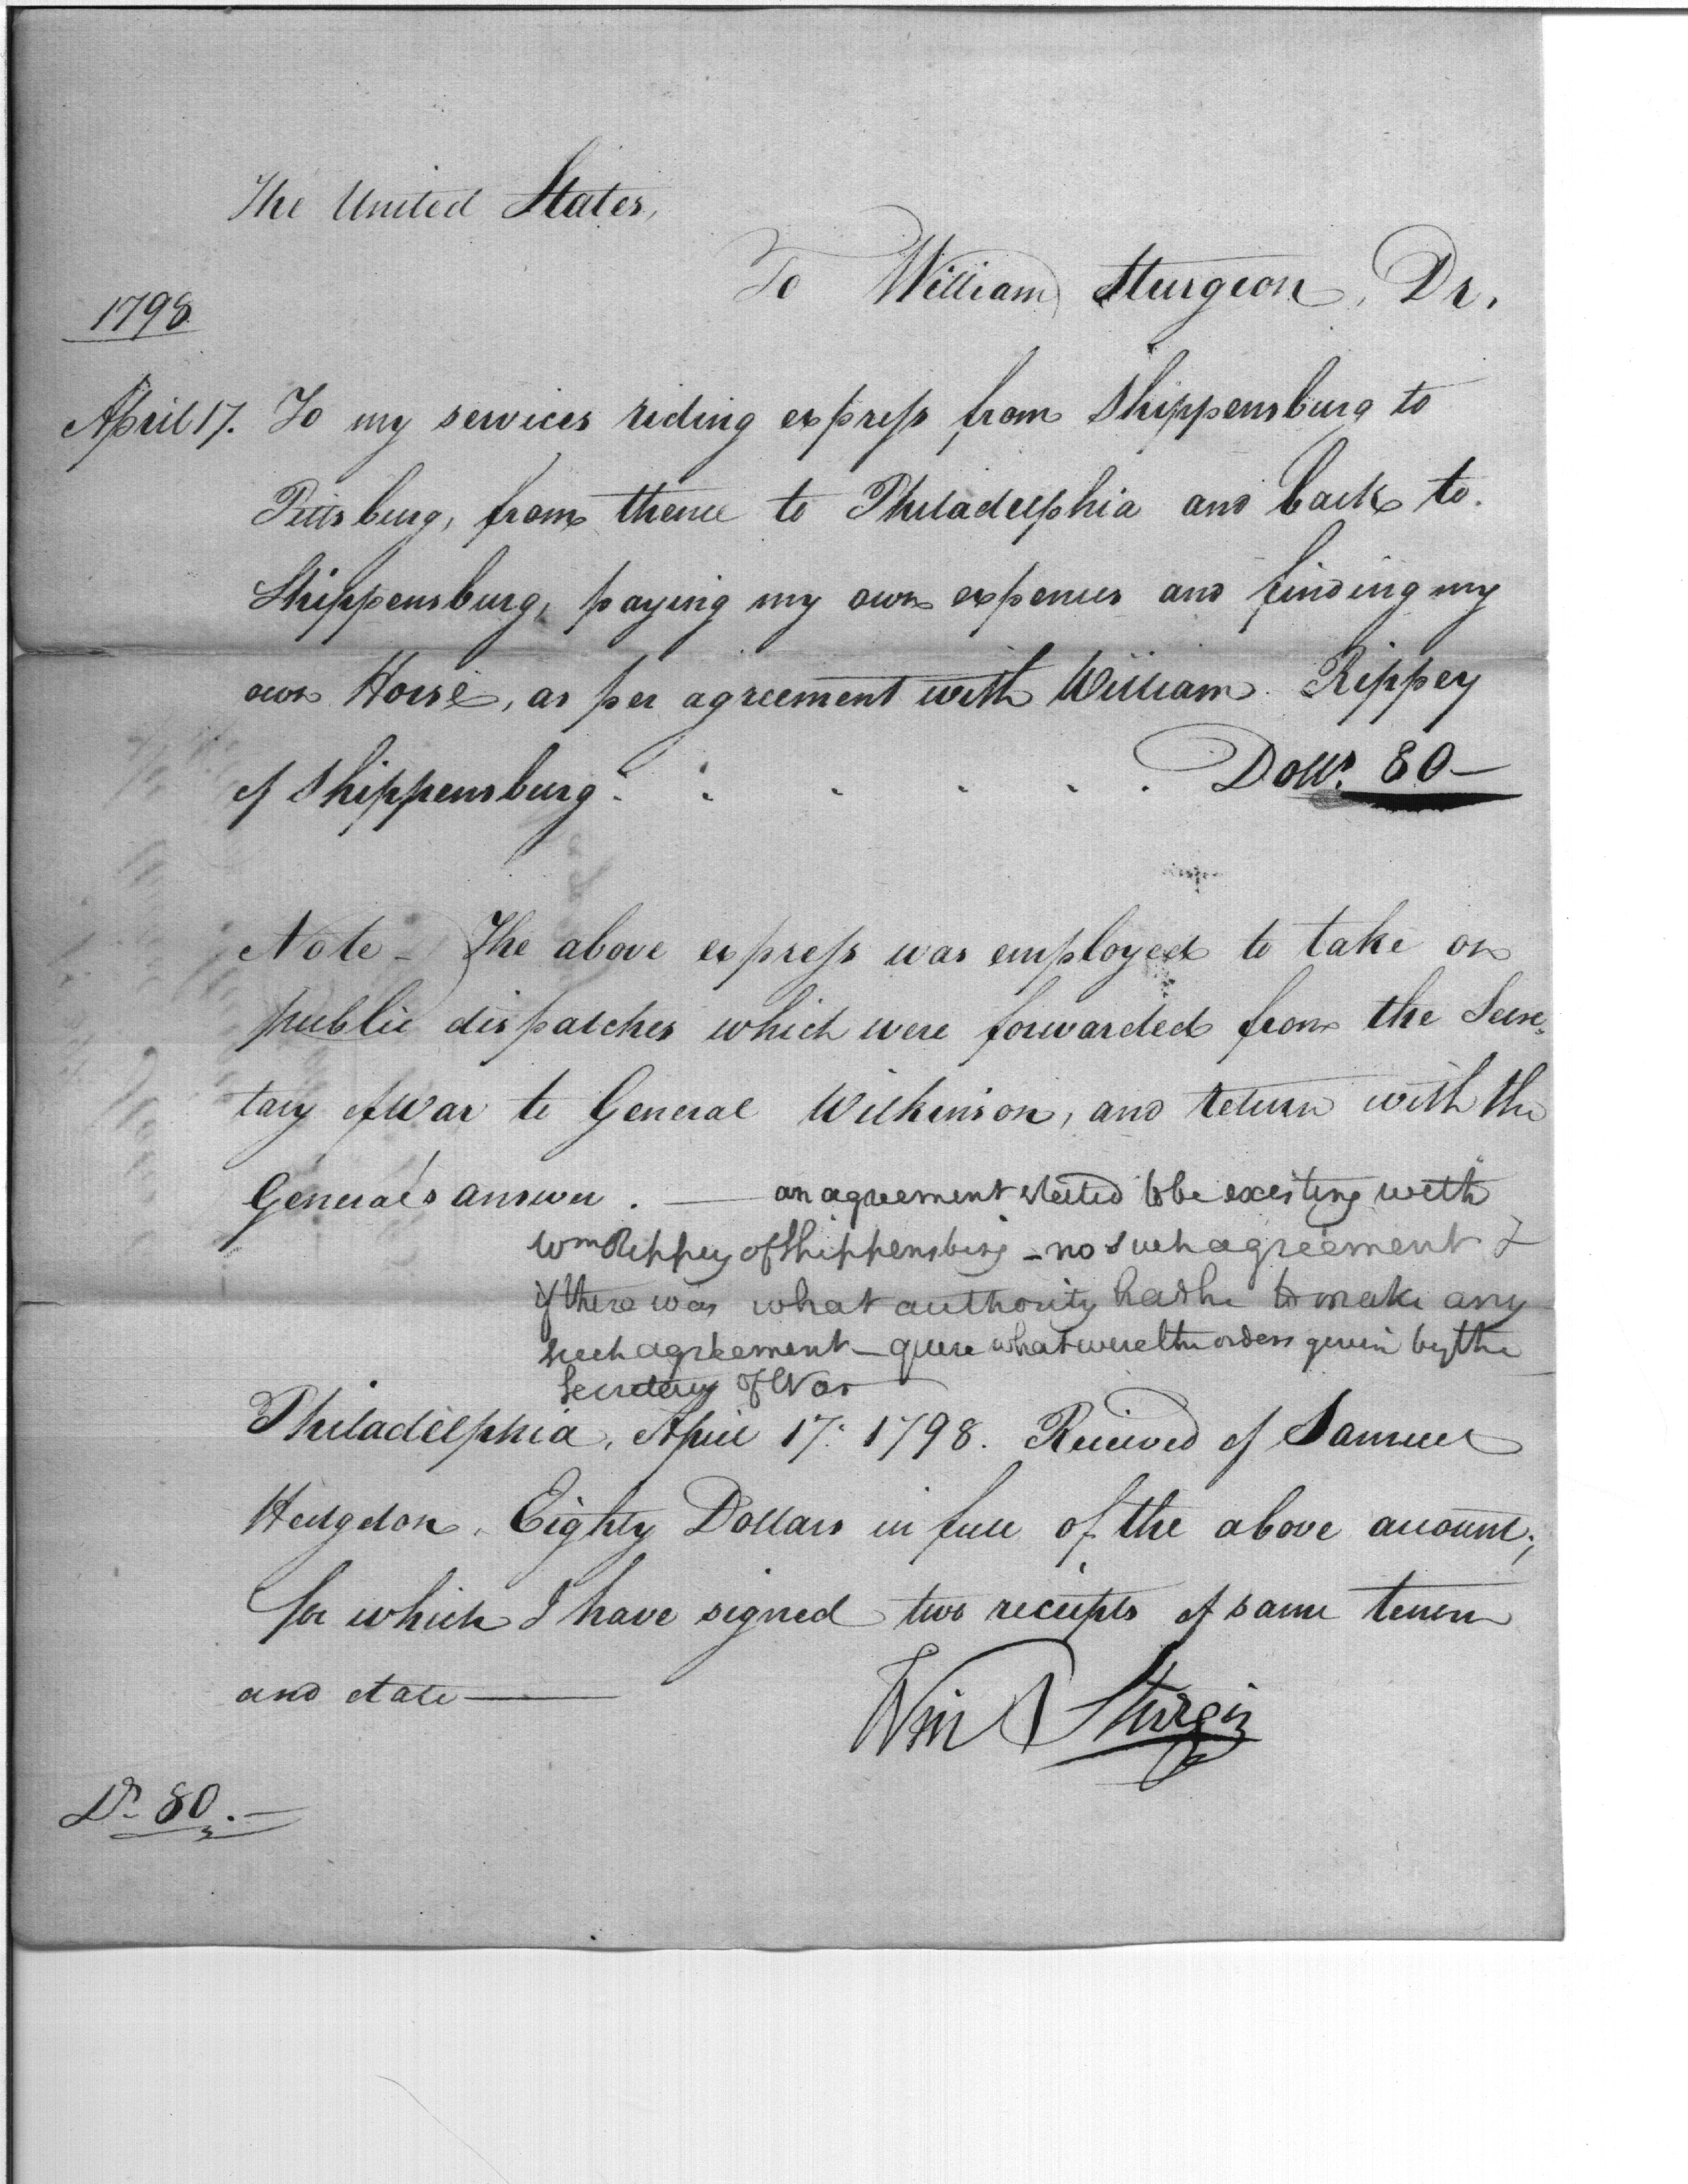 The United States,
To William Sturgeon, Dr.
1798
April 17. To my services riding express from Shippensburg to
Pittsburg, from thence to Philadelphia and back to
Shippensburg, paying my own expenses and finding my
own Horse, as per agreement with William Rippey
of Shippensburg . . . . . . Dolls. 80—
Note - The above express was employed to take on
public dispatches which were forwarded from the Secre=
tary of War to General Wilkinson, and return with the
General's answer. — an agreement stated to be existing with
Wm Rippey of Shippensburg - no such agreement &
if there was what authority had he to make any
such agreement - quere what were the orders given by the
Secretary of War
Philadelphia, April 17. 1798. Received of Samuel
Hodgdon, Eighty Dollars in full of the above account;
for which I have signed two receipts of same tenor
and date —
Wm Sturgin
Ds. 80.—